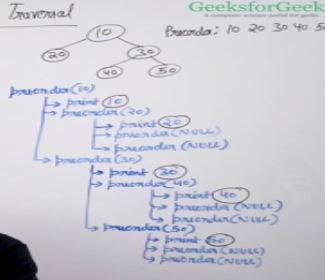 Traversal
GeeksforGeek
A computer science portal for geeks
Preorder: 10 20 30 40 50
10
20
30
40
50
preorder(10)
print 10
preorder(20)
print 20
preorder(NULL)
preorder(NULL)
preorder(30)
print 30
preorder(40)
print 40
preorder(NULL)
preorder(NULL)
preorder(50)
print 50
preorder(NULL)
preorder(NULL)